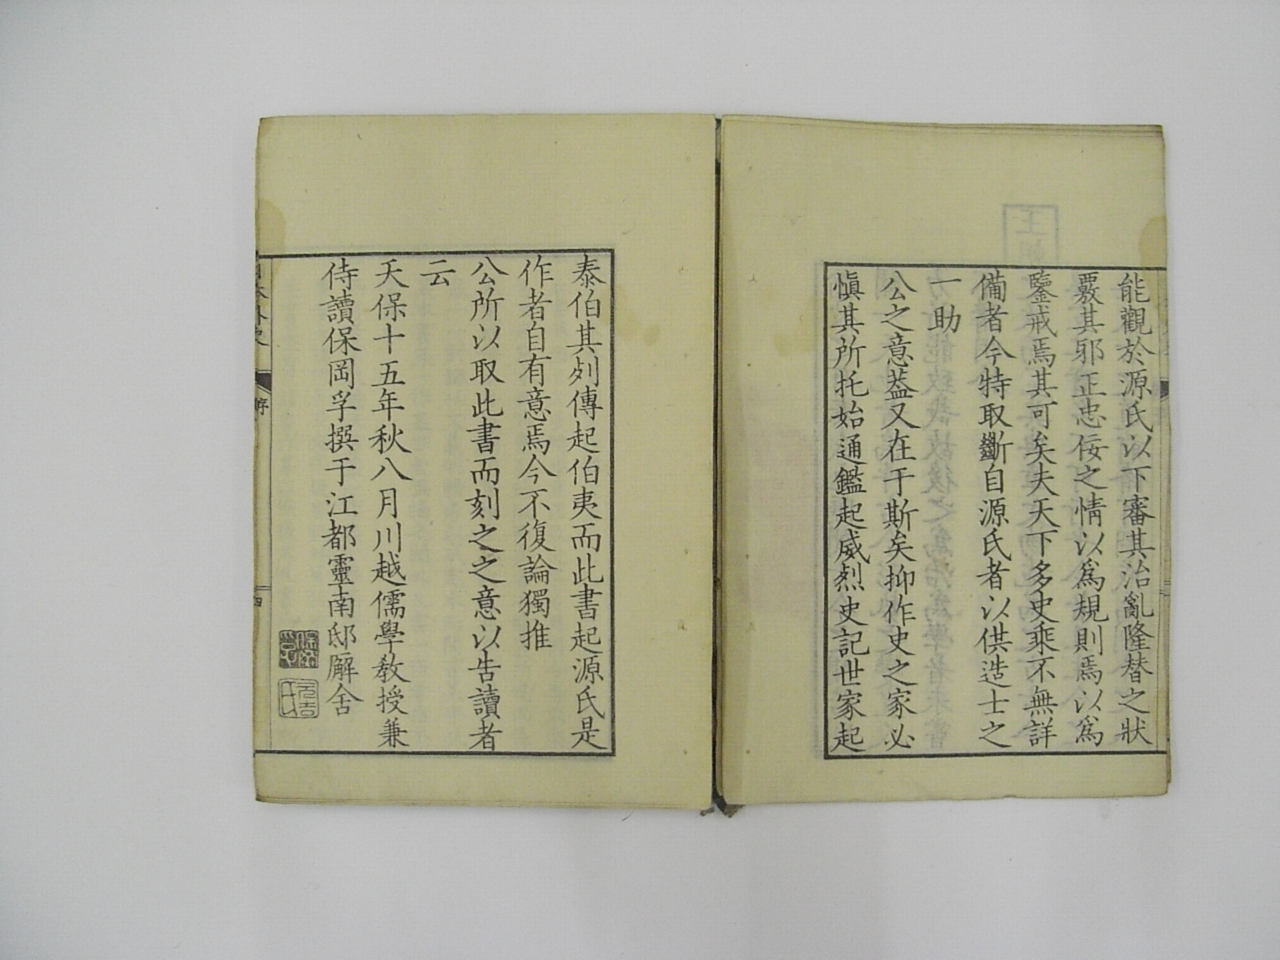 能觀於源氏以下審其治亂隆替之狀
覈其邪正忠佞之情以爲規則焉以爲
鑒戒焉其可矣夫天下多史乘不無詳
備者今特取斷自源氏者以供造士之
一助
公之意葢又在于斯矣抑作史之家必
愼其所托始通鑑起威烈史記世家起
泰伯其列傳起伯夷而此書起源氏是
作者自有意焉今不復論獨推
公所以取此書而刻之之意以告讀者
云
天保十五年秋八月川越儒學敎授兼
侍讀保岡孚撰于江都靈南邸廨舍